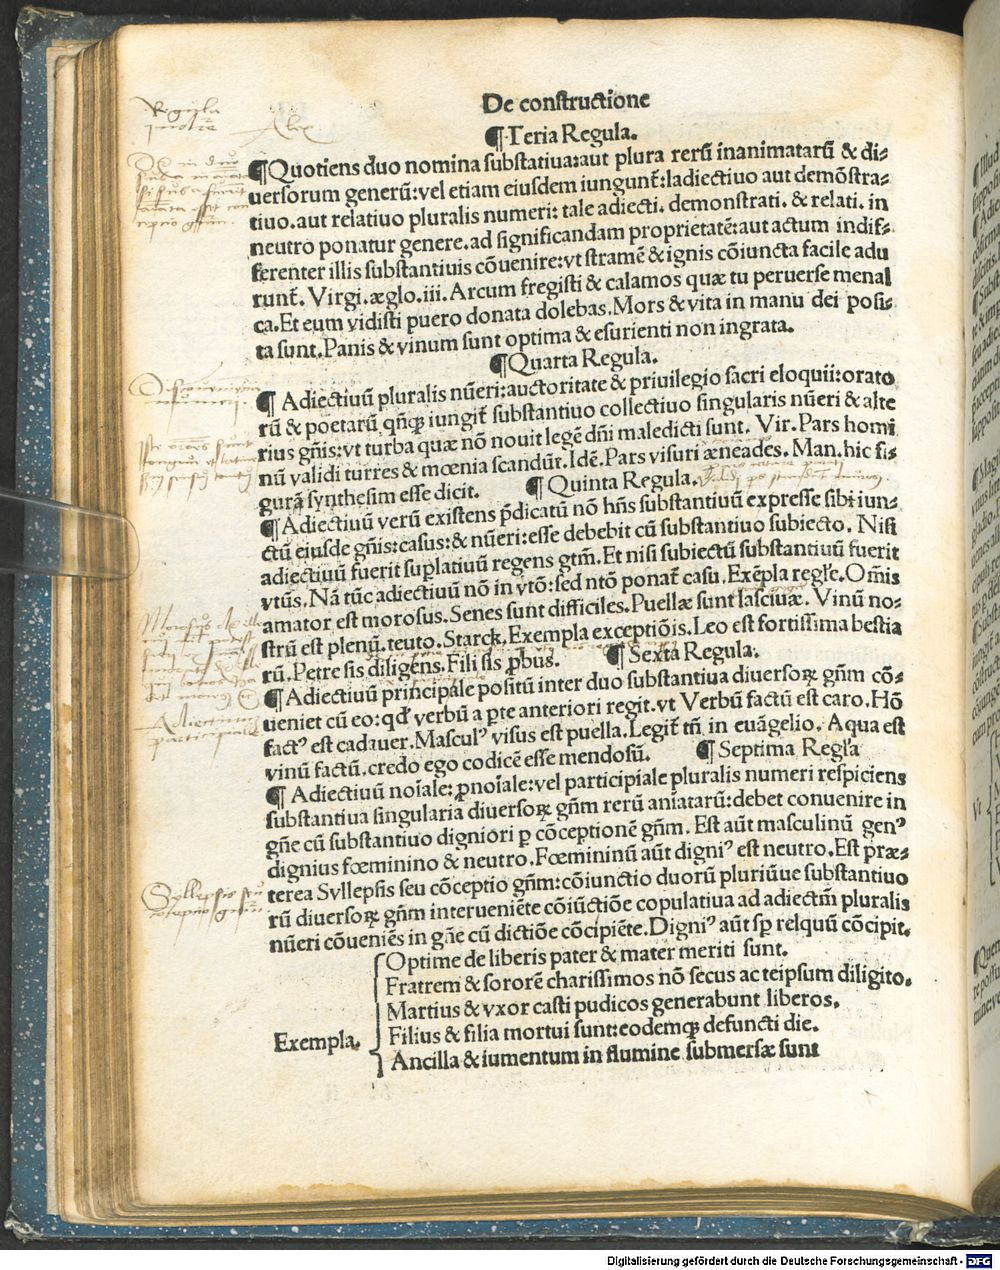 De constructione
¶Teria Regula.
¶Quotiens duo nomina substatiua:aut plura rerū inanimatarū & di-
uersorum generū:vel etiam eiusdem iungunt̄:ladiectiuo aut demōstra-
tiuo.aut relatiuo pluralis numeri: tale adiecti. demonstrati. & relati. in
neutro ponatur genere.ad significandam proprietatē:aut actum indif-
ferenter illis substantiuis cōuenire:vt stramē & ignis cōiuncta facile adu
runt̄. Virgi. æglo.iii. Arcum fregisti & calamos quæ tu peruerse menal
ca.Et eum vidisti puero donata dolebas.Mors & vita in manu dei posi-
ta sunt.Panis & vinum sunt optima & esurienti non ingrata.
¶Quarta Regula.
¶ Adiectiuū pluralis nūeri:auctoritate & priuilegio sacri eloquii:orato
rū & poetarū qñqꝫ iungit̄ substantiuo collectiuo singularis nūeri & alte
rius gñis:vt turba quæ nō nouit legē dñi maledicti sunt. Vir.Pars homi
nū validi turres & mœnia scandūt.Idē.Pars visuri æneades. Man.hic fi-
gurā synthesim esse dicit. ¶ Quinta Regula.
¶Adiectiuū verū existens p̄dicatū nō hñs substantiuū expresse sibi iun-
ctū eiusde gñis:casus:& nūeri:esse debebit cū substantiuo subiecto. Nisi
adiectiuū fuerit sup̱latiuū regens gtm̄.Et nisi subiectū substantiuū fuerit
vtūs. Nā tūc adiectiuū nō in vtō:sed ntō ponat̄ casu. Exēpla regl̄e.Om̄is
amator est morosus.Senes sunt difficiles.Puellæ sunt lasciuæ. Vinū no-
strū est plenū.teuto.Starck.Exempla exceptiōis.Leo est fortissima bestia
rū.Petre sis diligens.Fili sis ꝓbus. ¶Sexta Regula.
¶Adiectiuū principale positū inter duo substantiua diuersoꝝ gñm cō-
ueniet cū eo:qđ verbū a ꝑte anteriori regit.vt Verbū factū est caro.Hō
factꝰ est cadauer.Masculꝰ visus est puella.Legit̄ tñ in euāgelio. Aqua est
vinū factū.credo ego codicē esse mendosū. ¶ Septima Regl̄a
¶ Adiectiuū noīale: ꝓnoīale:vel participiale pluralis numeri respiciens
substantiua singularia diuersoꝝ gñm rerū aniatarū:debet conuenire in
gñe cū substantiuo digniori ꝑ cōceptionē gñm. Est aūt masculinū genꝰ
dignius fœminino & neutro.Fœmininū aūt digniꝰ est neutro.Est præ-
terea Syllepsis seu cōceptio gñm:cōiunctio duorū pluriūue substantiuo
rū diuersoꝝ gñm interueniēte cōiūctiōe copulatiua ad adiectm̄ pluralis
nūeri cōueniēs in gñe cū dictiōe cōcipiēte.Digniꝰ aūt sp̄ relquū cōcipit.
Exempla.
Optime de liberis pater & mater meriti sunt.
Fratrem & sororē charissimos nō secus ac teipsum diligito.
Martius & vxor casti pudicos generabunt liberos.
Filius & filia mortui sunt:eodemqꝫ defuncti die.
Ancilla & iumentum in flumine submersæ sunt
Regula
Alex
Adiectiuum
participiale
Syllepsis seu
Digitalisierung gefördert durch die Deutsche Forschungsgemeinschaft - DFG